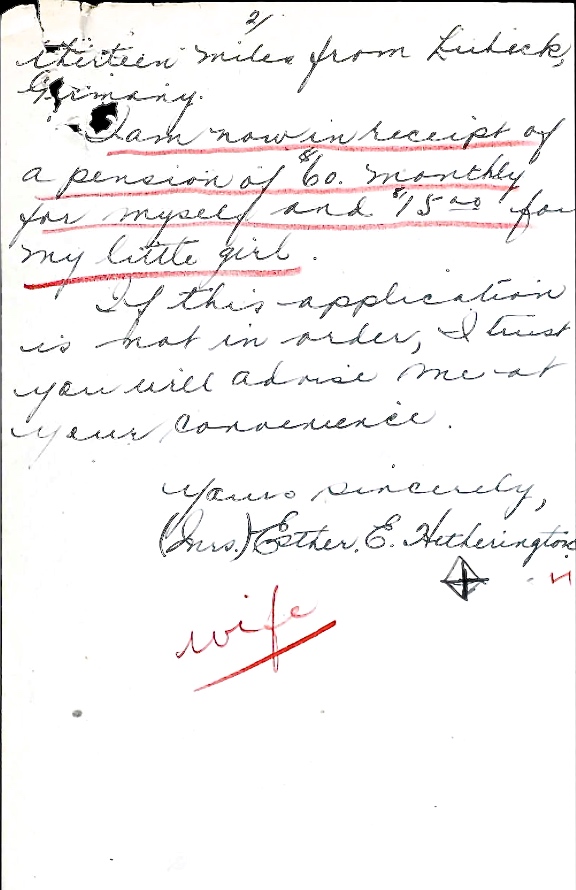 2/.
thirteen miles from Lubeck,
Germany.
I am now in receipt of
a pension of $60. monthly
for myself and $15.00 for
my little girl.
If this application
is not in order, I trust
you will advise me at
your convenience.
Yours sincerely,
(Mrs.) Esther. E. Hetherington
wife